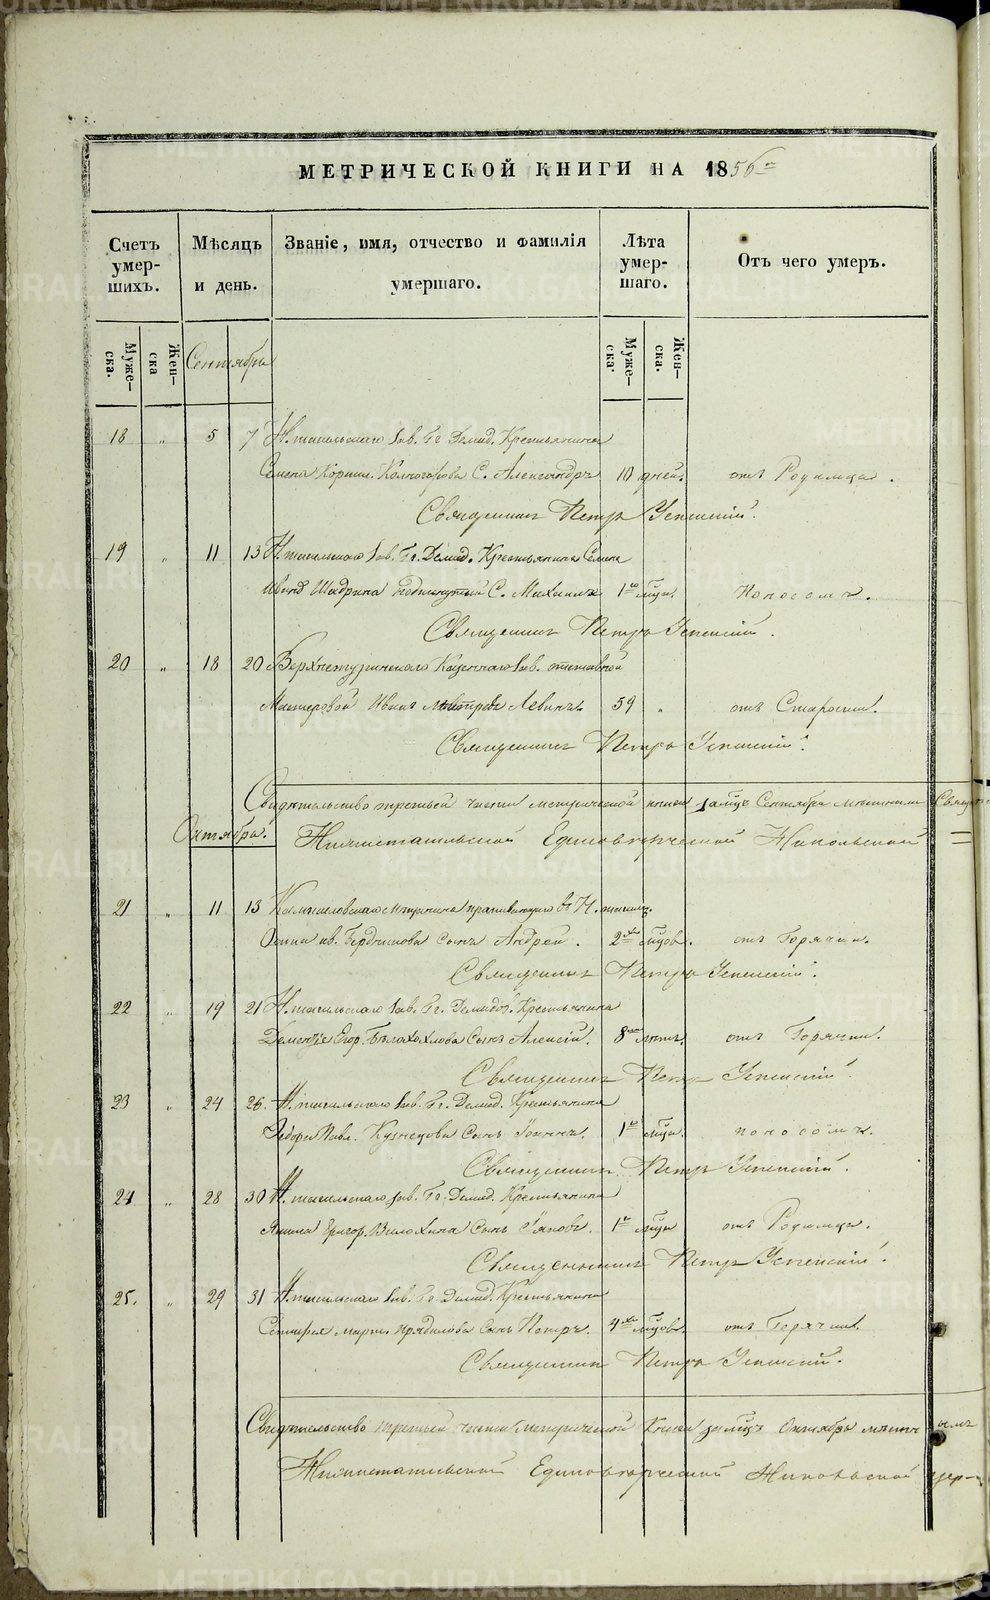 МЕТРИЧЕСКОЙ КНИГИ НА 1856
Счетъ умер-шихъ. Мѣсяцъ и день. Званіе, имя, отчество и фамилія умершаго. Лѣта умер-шаго. Отъ чего умеръ.
Муже-ска. Жен-ска Сентября Муже-ска. Жен-ска.
18 „ 5 7 Н. тагильскаго зав. Гг. Демид. Крестьянина
Семена Корнил. Колногорова С. Александръ 10 дней. отъ Родимца.
Священникъ Петръ Успенскій.
19 „ 11 13 Н. тагильскаго зав. Гг. Демид. Крестьянина Семена
Шадрина подкинутый С. Михаилъ 1 мѣсц. Поносомъ.
Священникъ Петръ Успенскій.
20 „ 18 20 Верхнетуринскаго Казеннаго зав. отставной
Мастеровой Иванъ Левинъ. 59 „ отъ Старости.
Священникъ Петръ Успенскій.
Свидѣтельство третьей части метрической книги за мцъ Сентябрь
Октябрь. Нижнетагильской Единовѣрческой Никольской
21 „ 11 13 Камышловскаго мѣщанина проживающаго въ Н. тагил.
Осипа ив. сынъ Андрей. 2 мцов. отъ Горячки.
Священникъ Петръ Успенскій.
22 „ 19 21 Н. тагильскаго зав. Гг. Демидов. Крестьянина
Дементія Егор. Бѣлохохлова Сынъ Алексій. 8 лѣтъ. отъ Горячки.
Священникъ Петръ Успенскій.
23 „ 24 26. Н. тагильскаго зав. Гг. Демид. Крестьянина
Павл. Кузнецова Сынъ Іоаннъ. 1 мца. поносомъ.
Священникъ Петръ Успенскій.
24 „ 28 30 Н. тагильскаго зав. Гг. Демид. Крестьянина
Григор. Сынъ Іаковъ. 1 мца отъ Родимца.
Священникъ Петръ Успенскій.
25. „ 29 31 Н. тагильскаго зав. Гг. Демид. Крестьянина
Март. Прядилова Сынъ Петръ. 4 мцов. отъ Горячки.
Священникъ Петръ Успенскій.
Свидѣтельство третьей части Метрической Книги за мцъ Октябрь
Нижнетагильской Единовѣрческой Никольской цер-
METRIKI.GASO-URAL.RU